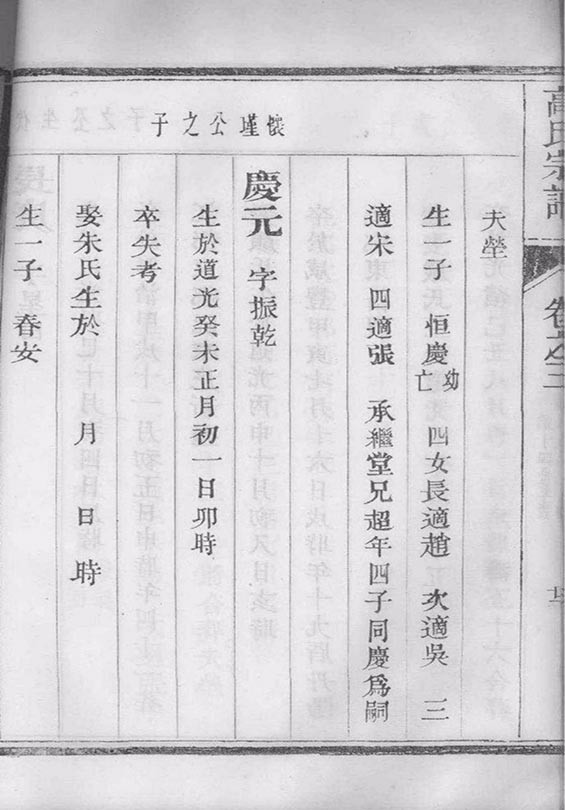 高氏宗譜
卷之三
夫塋
生一子 恒慶 幼亡 四女長適趙 次適吳 三
適宋 四適張 承繼堂兄超年四子同慶爲嗣
懷瑾公之子
慶元 字振乾
生於道光癸未正月初一日卯時
卒失考
娶朱氏生於 月 日 時
生一子 春安